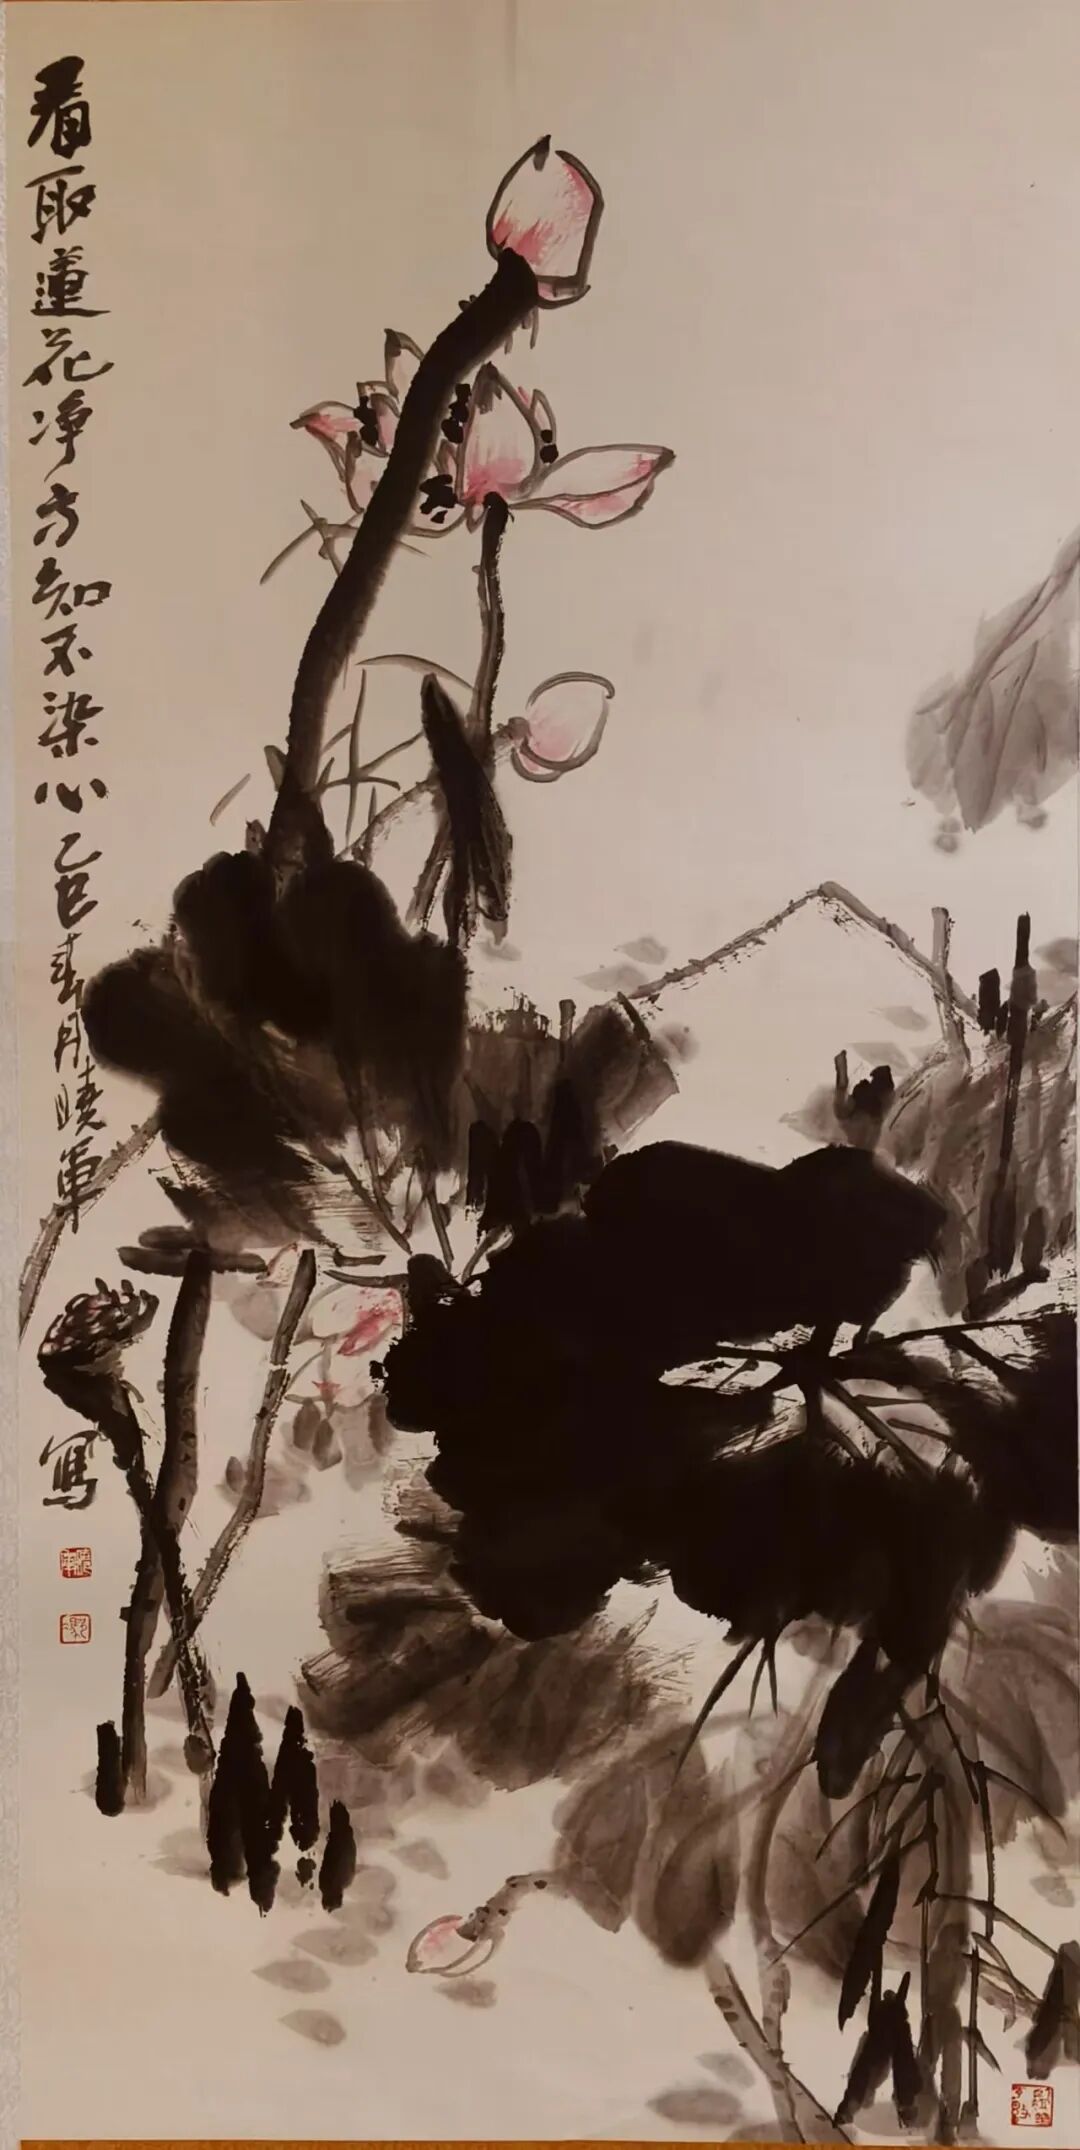 看取蓮花净方知不染心乙巳春月曉軍
寫